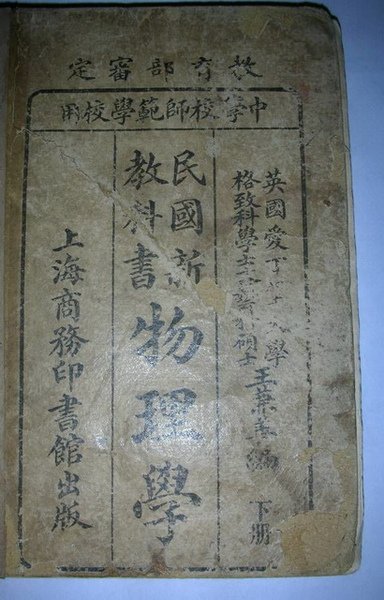 教育部審定
中學校師範學校用
英國愛丁大學
格致科學士碩士王兼善編
下冊
民國新
教科書
物理學
上海商務印書館出版